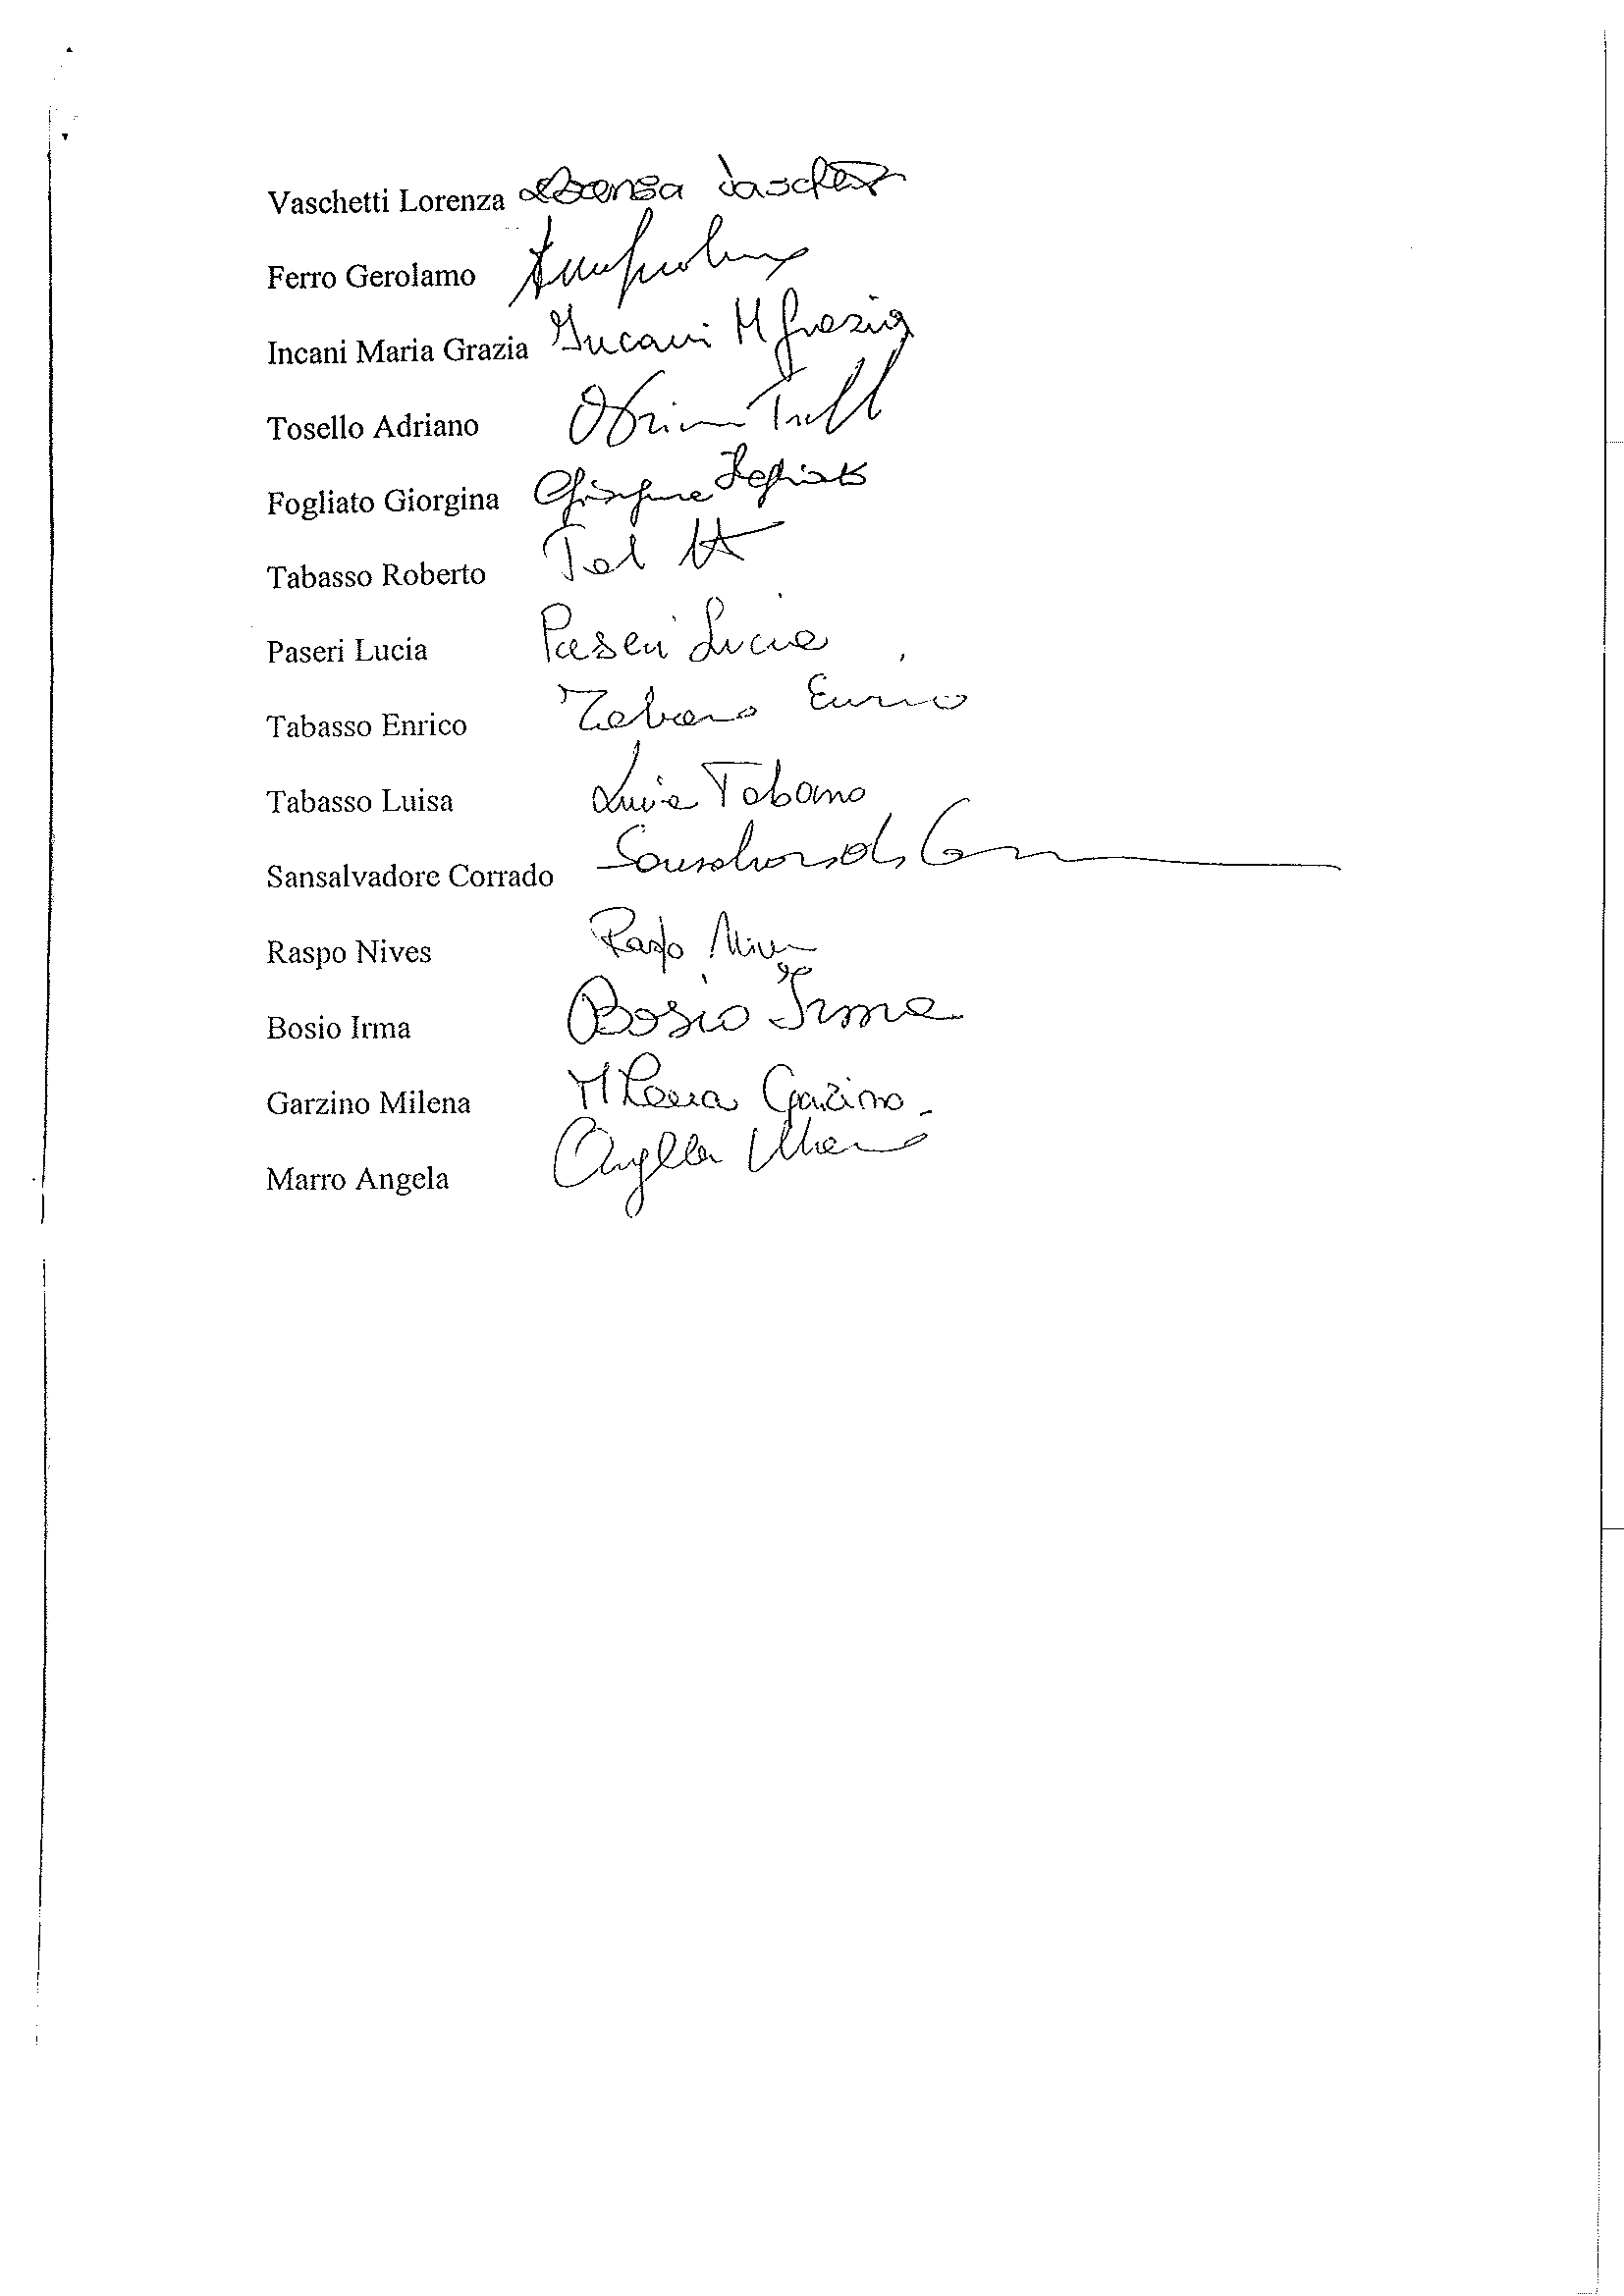 Vaschetti Lorenza Lorenza Vaschetti
Ferro Gerolamo
Incani Maria Grazia Incani M Grazia
Tosello Adriano
Fogliato Giorgina Giorgina Fogliato
Tabasso Roberto
Paseri Lucia Paseri Lucia
Tabasso Enrico Tabasso Enrico
Tabasso Luisa Luisa Tabasso
Sansalvadore Corrado
Raspo Nives Raspo Nives
Bosio Irma Bosio Irma
Garzino Milena Milena Garzino
Marro Angela Angela Marro